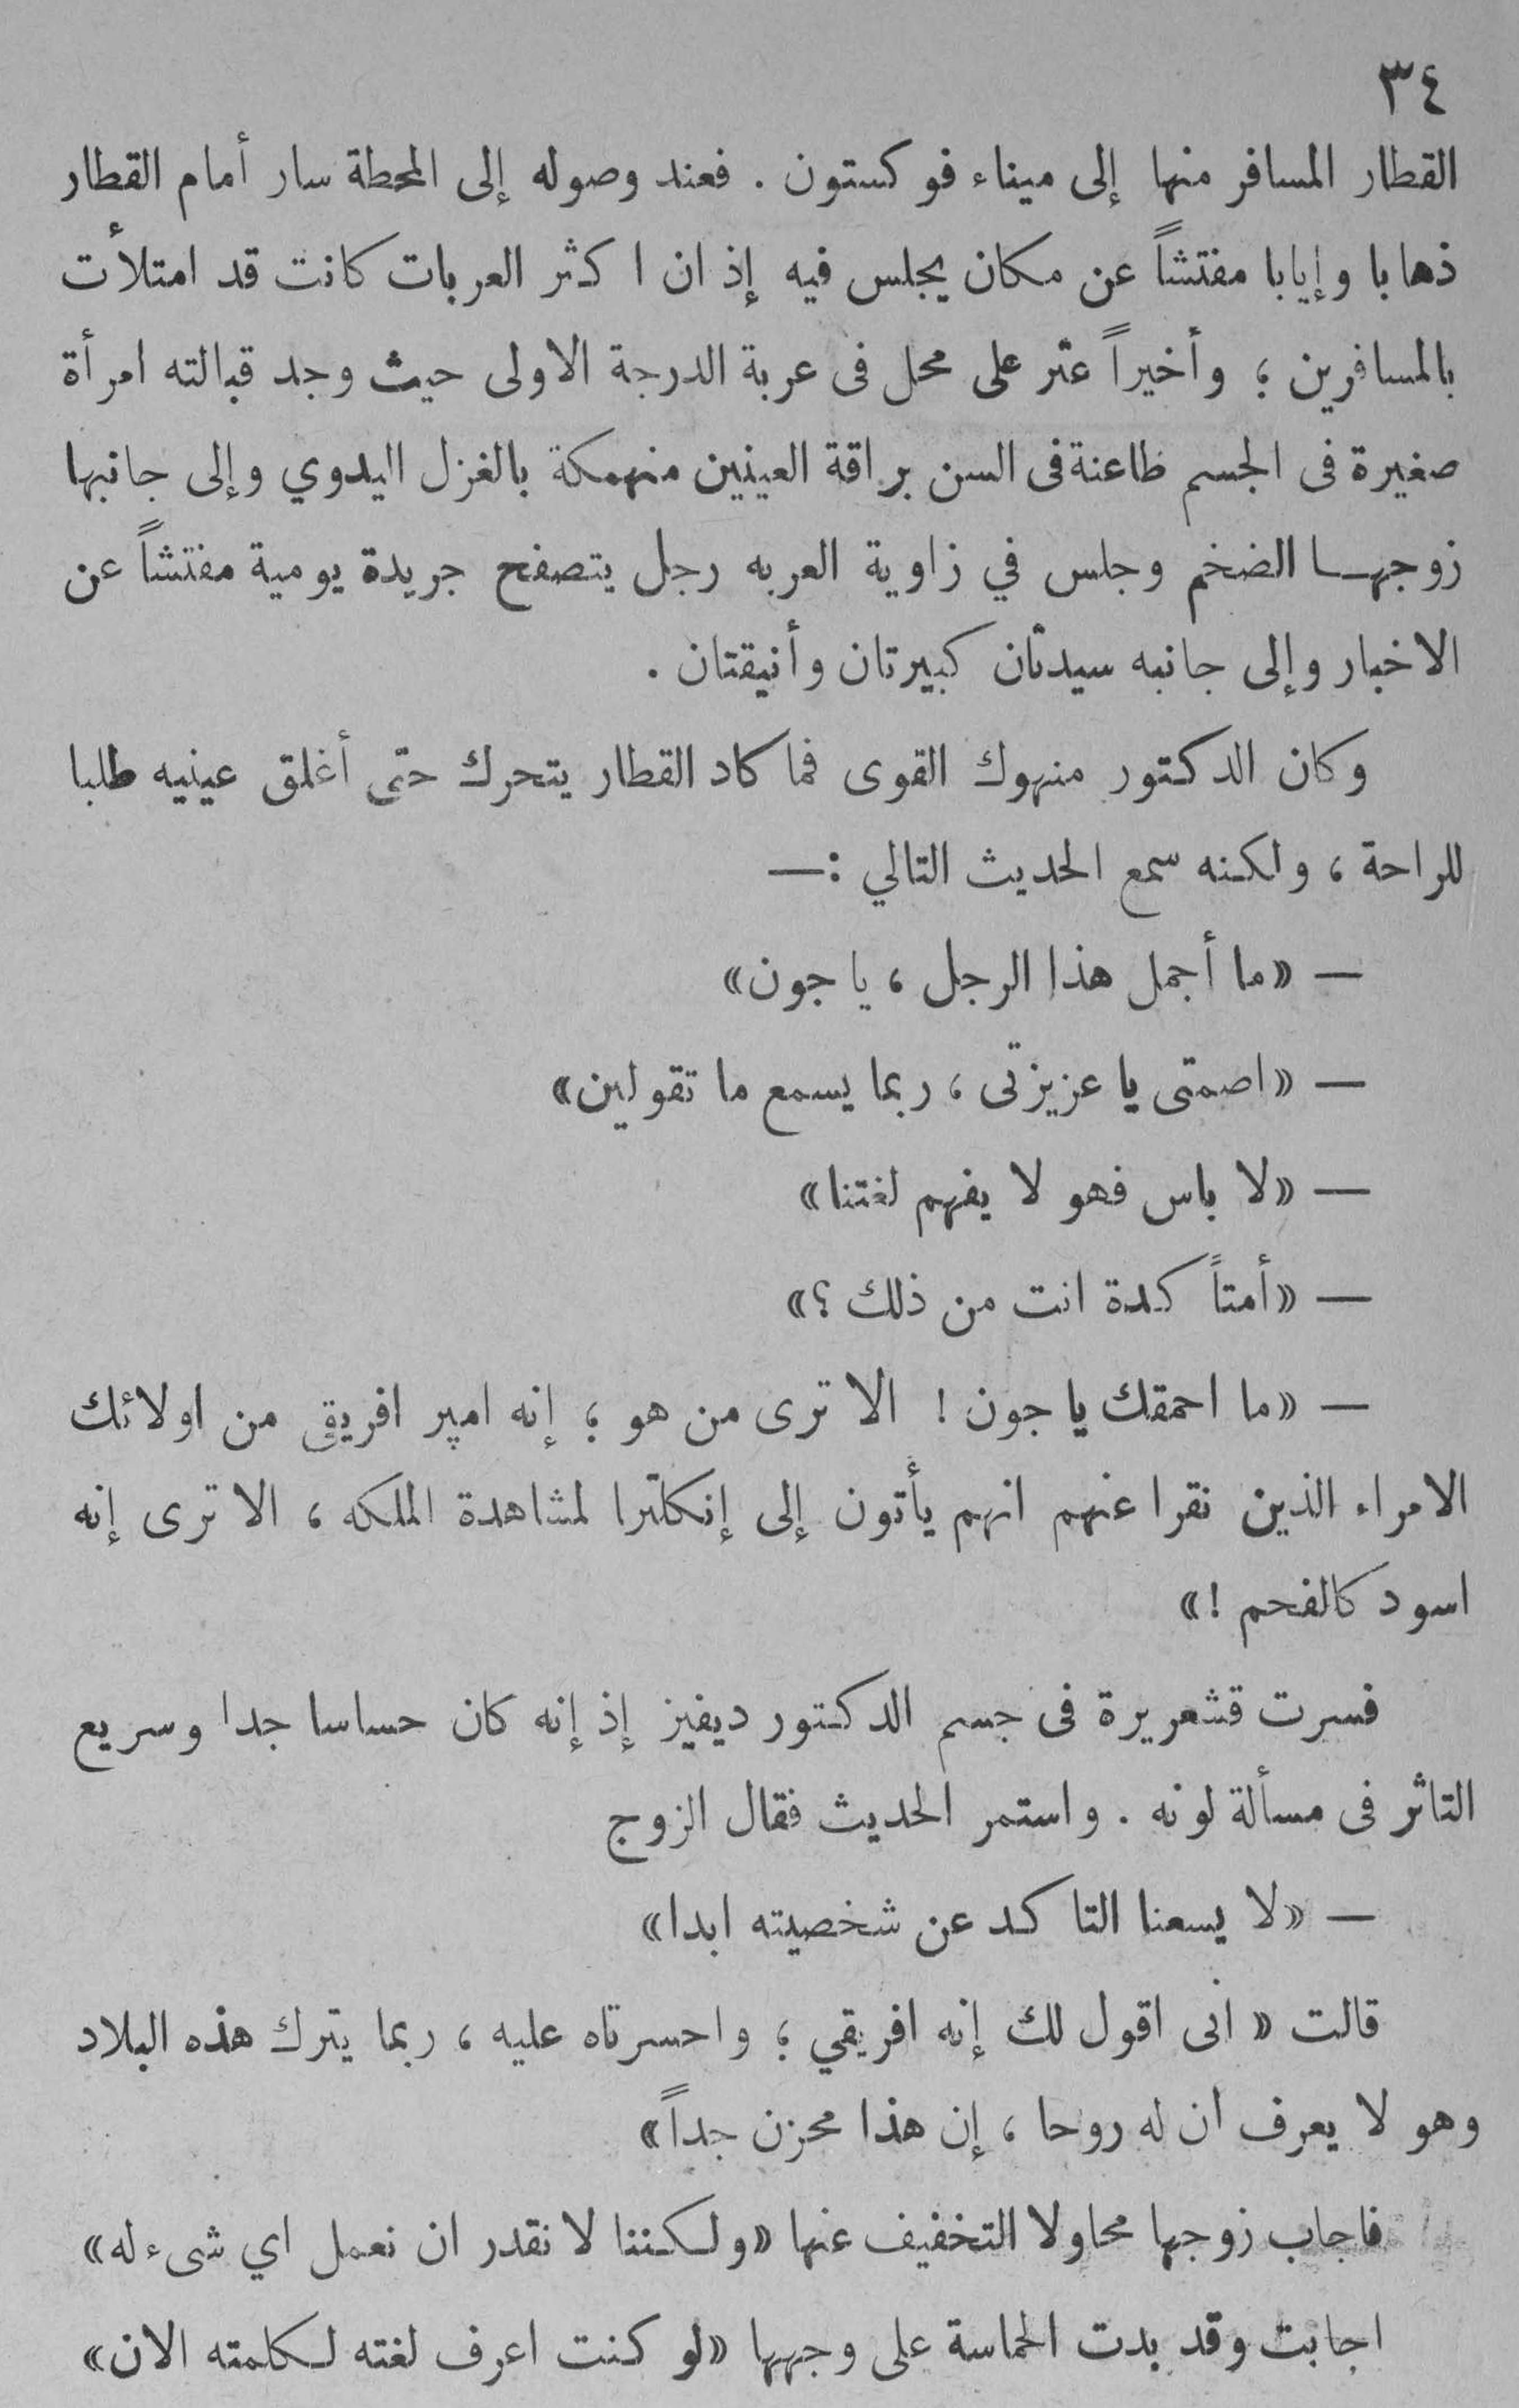 ٣٤
القطار المسافر منها إلى ميناء فوكستون . فعند وصوله إلى المحطة سار أمام القطار
ذهابا وإيابا مفتشاً عن مكان يجلس فيه إذ ان اكثر العربات كانت قد امتلأت
بالمسافرين ؛ وأخيراً عثر على محل فى عربة الدرجة الاولى حيث وجد قبالته امرأة
صغيرة فى الجسم طاعنة فى السن براقة العينين منهمكة بالغزل اليدوي وإلى جانبها
زوجها الضخم وجلس في زاوية العربه رجل يتصفح جريدة يومية مفتشاً عن
الاخبار وإلى جانبه سيدتان كبيرتان وأنيقتان .
وكان الدكتور منهوك القوى فما كاد القطار يتحرك حتى أغلق عينيه طلبا
للراحة ، ولكنه سمع الحديث التالي :—
— «ما أجمل هذا الرجل ، يا جون»
— «اصمتى يا عزيزتى ، ربما يسمع ما تقولين»
— «لا باس فهو لا يفهم لغتنا»
— «أمتاً كدة انت من ذلك ؟»
— «ما احمقك يا جون ! الا ترى من هو ؛ إنه امير افريقى من اولائك
الامراء الذين نقرا عنهم انهم يأتون إلى إنكلترا لمشاهدة الملكه ، الا ترى إنه
اسود كالفحم !»
فسرت قشعريرة فى جسم الدكتور ديفيز إذ إنه كان حساسا جدا وسريع
التاثر فى مسألة لونه . واستمر الحديث فقال الزوج
— «لا يسعنا التاكد عن شخصيته ابدا»
قالت « انى اقول لك إنه افريقي ؛ واحسرتاه عليه ، ربما يترك هذه البلاد
وهو لا يعرف ان له روحا ، إن هذا محزن جداً»
فاجاب زوجها محاولا التخفيف عنها «ولكننا لا نقدر ان نعمل اي شىء له»
اجابت وقد بدت الحماسة على وجهها «لو كنت اعرف لغته لكلمته الان»